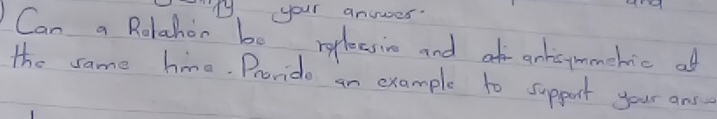 your answer.
Can a Relation be reflexsive and antisymmetric at
the same time. Provide an example to support your